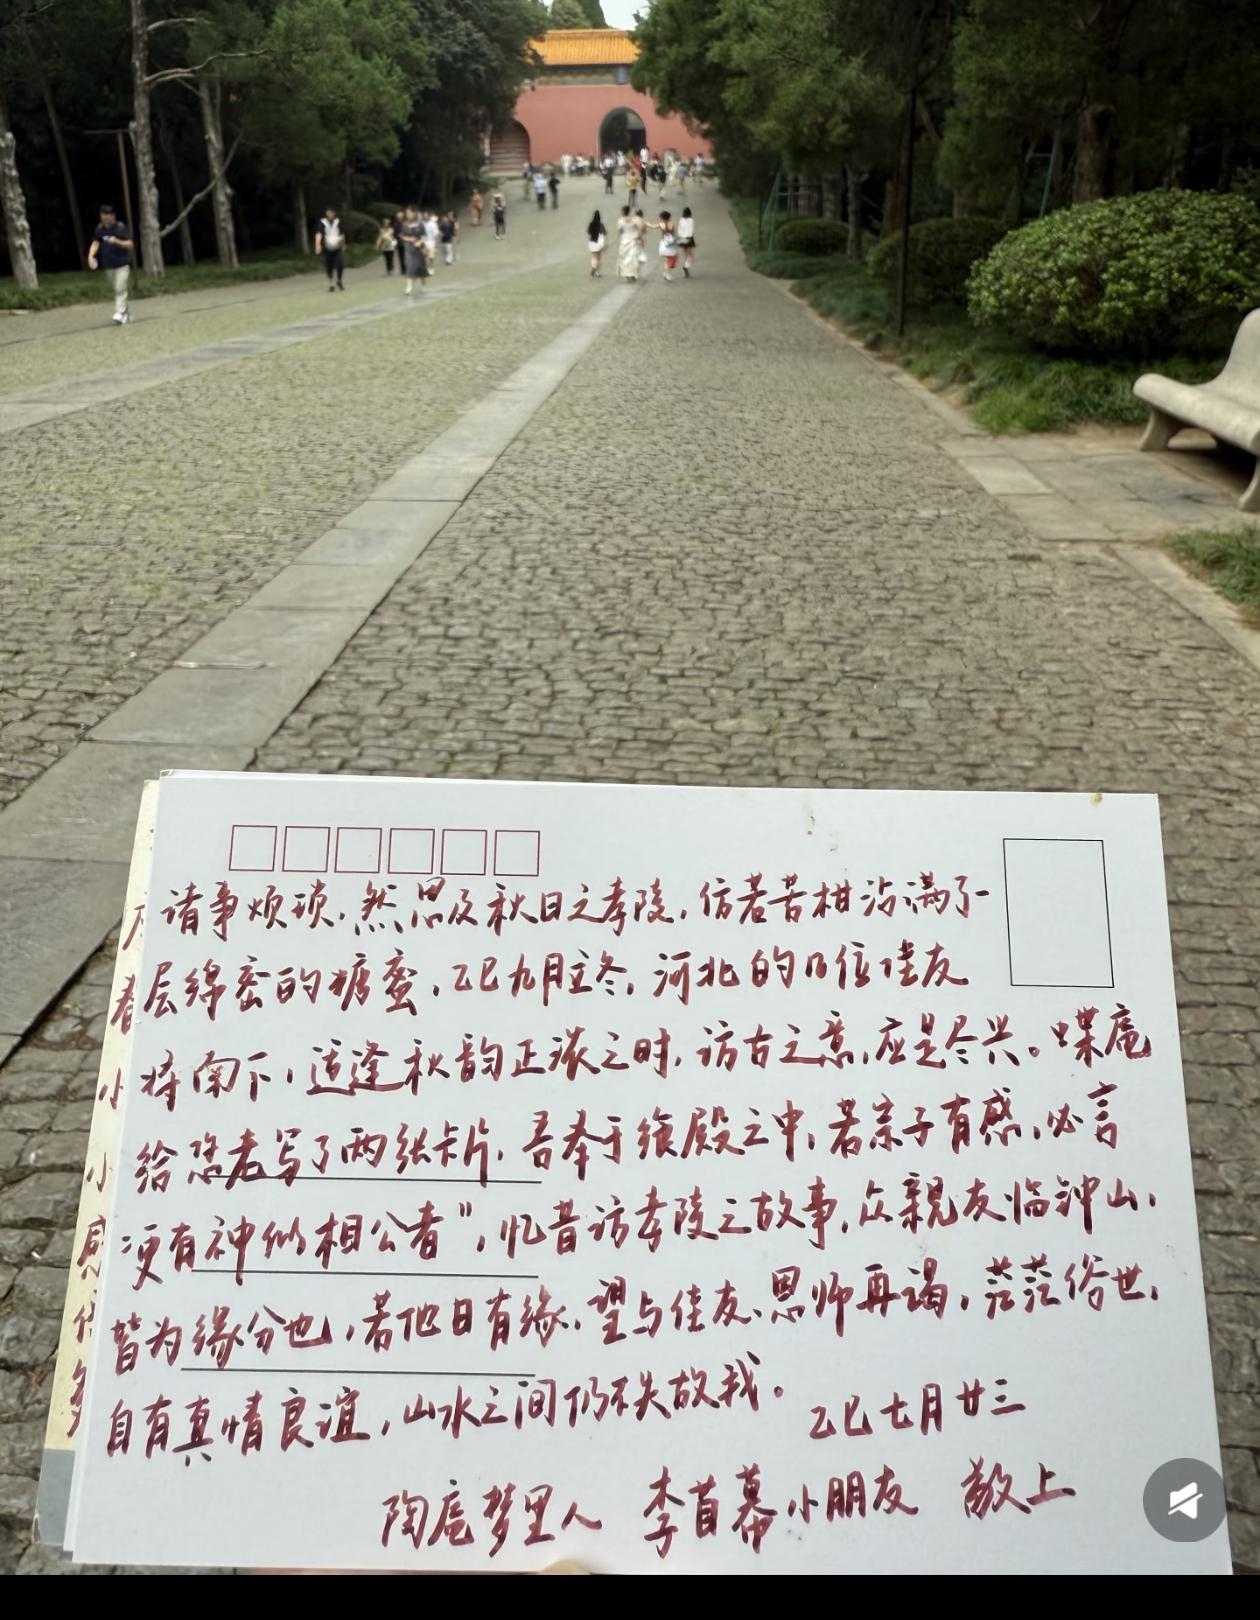 诸事烦琐，然思及秋日之孝陵，仿若苦柑沾满了一
层绵密的糖蜜，乙巳九月立冬，河北的几位佳友
将南下，适逢秋韵正浓之时，访古之意，应是尽兴。喋庵
给恐老写了两张卡片，吾奉于飨殿之中，若宗子有感，必言
“更有神似相公者”，忆昔访孝陵之故事，众亲友临钟山，
皆为缘分也，若他日有缘，望与佳友、恩师再谒，茫茫俗世，
自有真情良谊，山水之间仍不失故我。
乙巳七月廿三
陶庵梦里人 李首幕小朋友 敬上